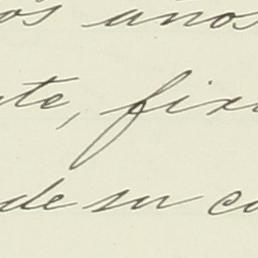 os años
te, fir
de su co